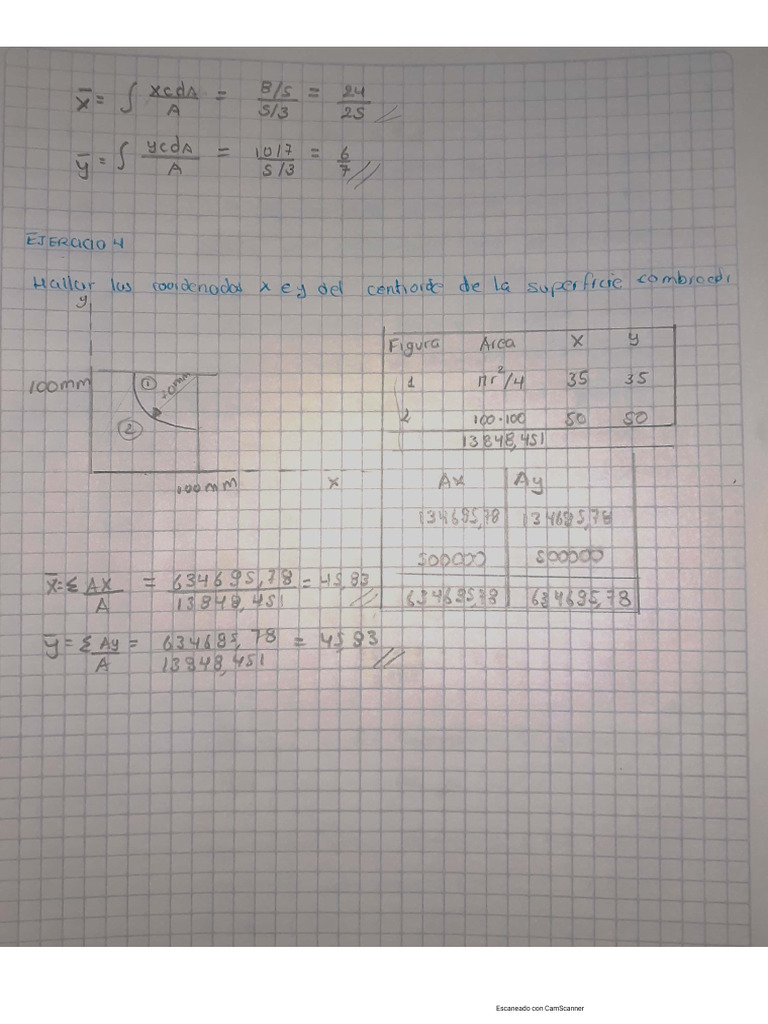 x̄ = ∫ xcdA / A = 8/5 / 5/3 = 24/25 //
ȳ = ∫ ycdA / A = 10/7 / 5/3 = 6/7 //
EJERCICIO 4
Hallar las coordenadas x e y del centroide de la superficie
y
100mm
①
②
100mm
x
Figura Area x y
1 πr²/4 35 35
2 100·100 50 50
13848,451
Ax Ay
134695,78 134695,78
500000 500000
634695,78 634695,78
x̄ = Σ Ax / A = 634695,78 / 13848,451 = 45,83 //
ȳ = Σ Ay / A = 634695,78 / 13848,451 = 45,83 //
Escaneado con CamScanner